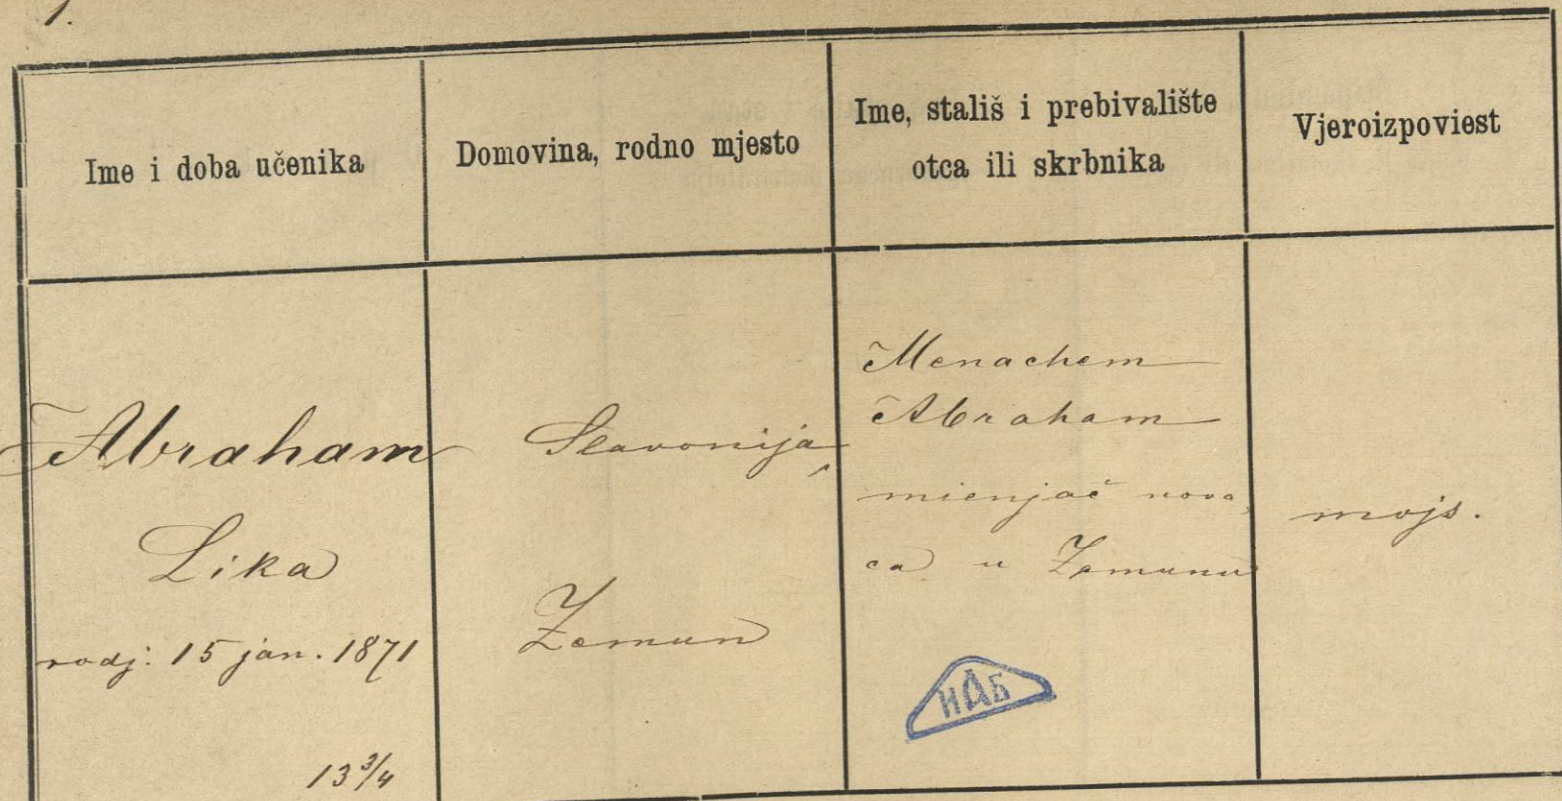 1.
Ime i doba učenika
Domovina, rodno mjesto
Ime, stališ i prebivalište
otca ili skrbnika
Vjeroizpoviest
Abraham
Lika
rodj. 15 jan. 1871
13 3/4
Slavonija,
Zemun
Menachem
Abraham
mienjač nova,
ca u Zemunu
mojs.
ИАБ